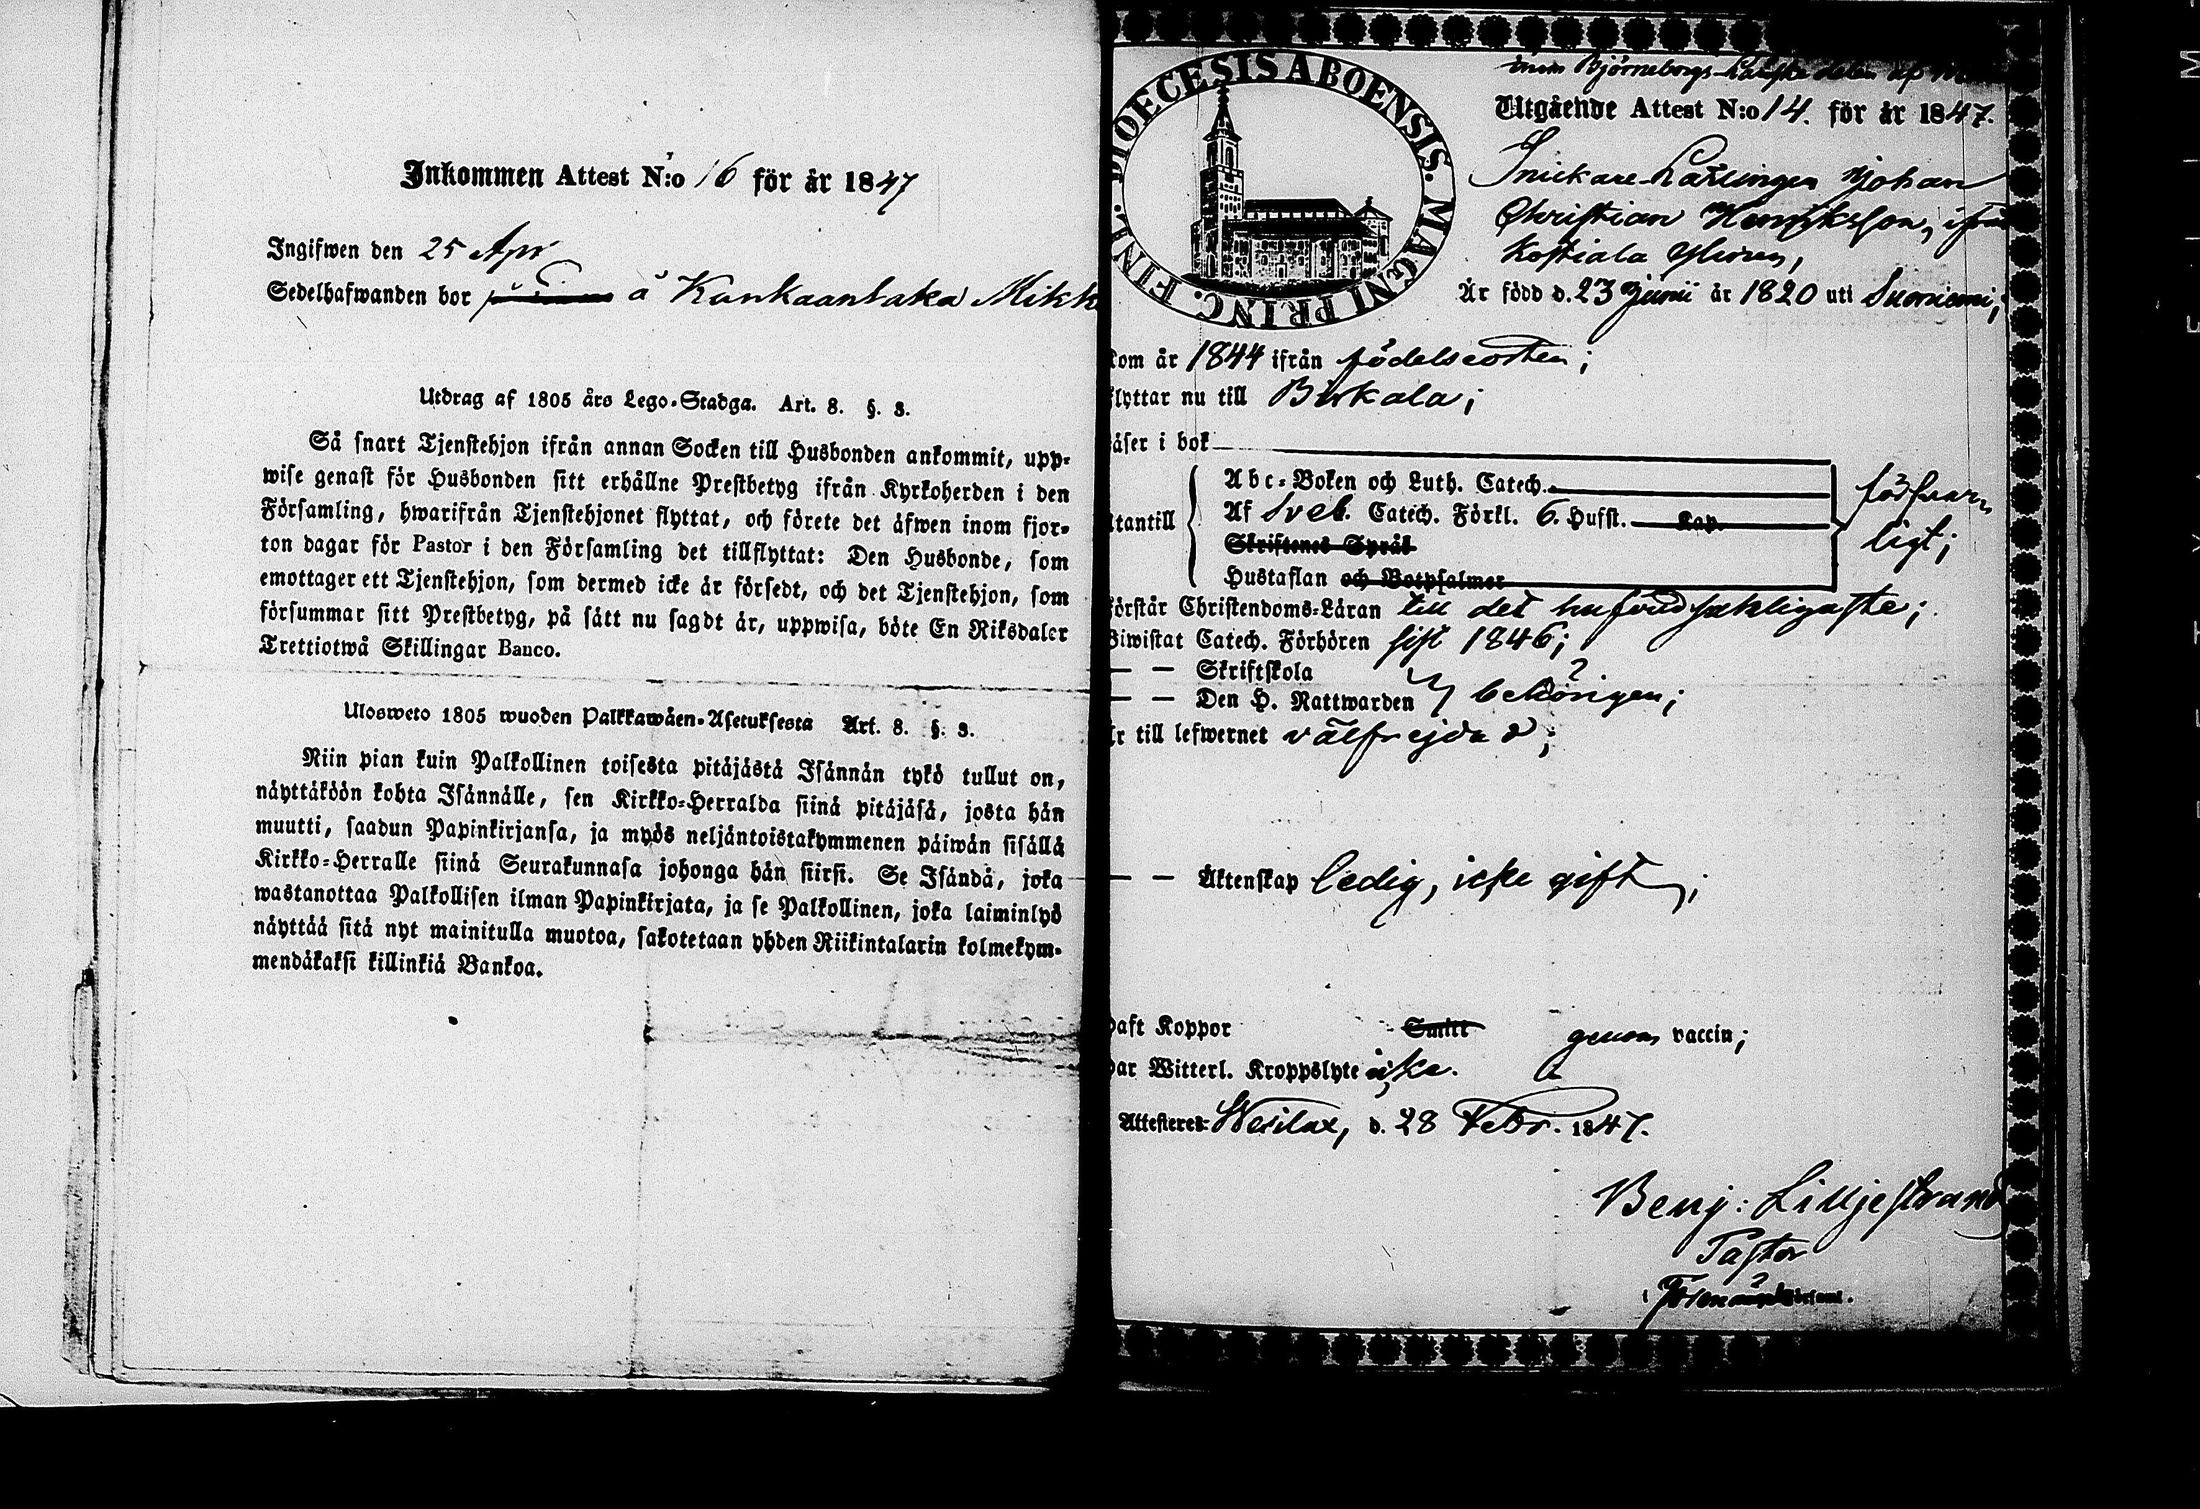 Inkommen Attest N:o 16 för år 1847
Ingifwen den 25 Apr
Sedelhafwanden bor å Kankaantaka Mikk
Utdrag af 1805 års Lego-Stadga. Art. 8. §. 3.
Så snart Tjenstehjon ifrån annan Socken till Husbonden ankommit, upp-
wise genast för Husbonden sitt erhållne Prestbetyg ifrån Kyrkoherden i den
Församling, hwarifrån Tjenstehjonet flyttat, och förete det äfwen inom fjor-
ton dagar för Pastor i den Församling det tillflyttat: Den Husbonde, som
emottager ett Tjenstehjon, som dermed icke är försedt, och det Tjenstehjon, som
försummar sitt Prestbetyg, på sätt nu sagdt är, uppwisa, böte En Riksdaler
Trettiotwå Skillingar Banco.
Ulosweto 1805 wuoden Palkkawäen-Asetuksesta Art. 8. §. 3.
Niin pian kuin Palkollinen toisesta pitäjästä Isännän tykö tullut on,
näyttäköön kohta Isännälle, sen Kirkko-Herralda siinä pitäjäsä, josta hän
muutti, saadun Papinkirjansa, ja myös neljäntoistakymmenen päiwän sisällä
Kirkko-Herralle siinä Seurakunnasa johonga hän siirsi. Se Isändä, joka
wastanottaa Palkollisen ilman Papinkirjata, ja se Palkollinen, joka laiminlyö
näyttää sitä nyt mainitulla muotoa, sakotetaan yhden Riikintalarin kolmekym-
mendäkaksi killinkiä Bankoa.
DIOECESIS ABOENSIS. MAGNI PRINC. FINL.
inom Björneborgs Läns delen af
Utgående Attest N:o 14. för år 1847.
Snickare-Lärlingen Johan
Christian Henriksson, ifrån
Kostiala Yloven,
Är född d. 23 Junii år 1820 uti Suoniemi;
kom år 1844 ifrån födelseorten;
flyttar nu till Birkala;
läser i bok
Abc-Boken och Luth. Catech.
utantill Af Sveb. Catech. Förkl. 6. Hufst. Kap. försvar-
Skriftenes Språk ligt;
Hustaflan och Botpsalmer
förstår Christendoms-Läran till det hufvudsakligaste;
Biwistat Catech. Förhören sist 1846;
— — Skriftskola
— — Den H. Nattwarden behörigen;
är till lefwernet välfrejdad;
— — Äktenskap ledig, icke gift;
haft Koppor Smitt genom vaccin;
har Witterl. Kroppslyte icke.
Attesteres Wesilax, d. 28 Febr. 1847.
Benj: Lilljestrand
Pastor